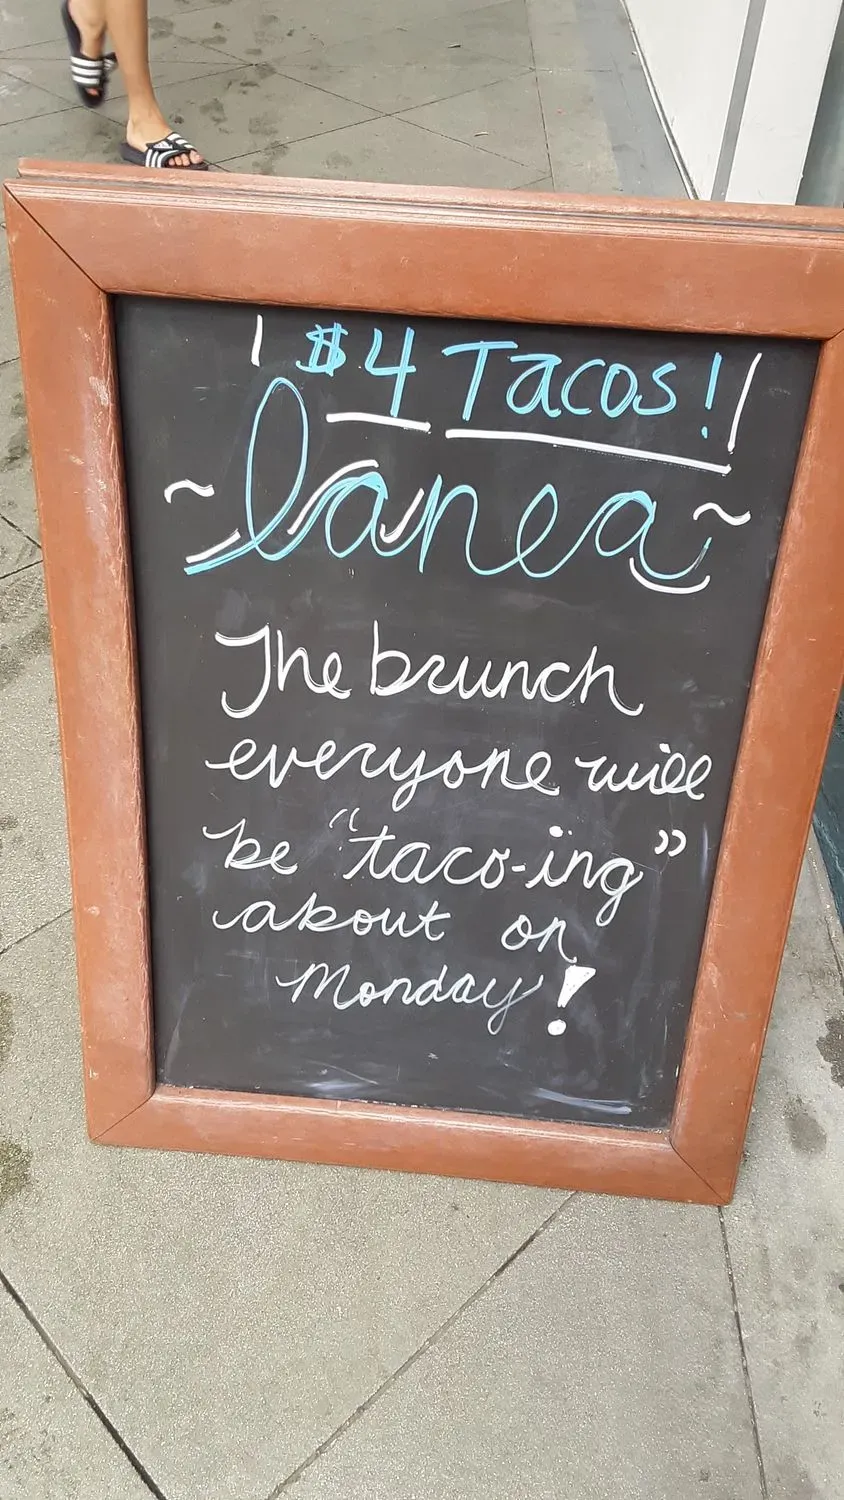 $4 Tacos!
~ lanea ~
The brunch
everyone will
be "taco-ing"
about on
Monday!